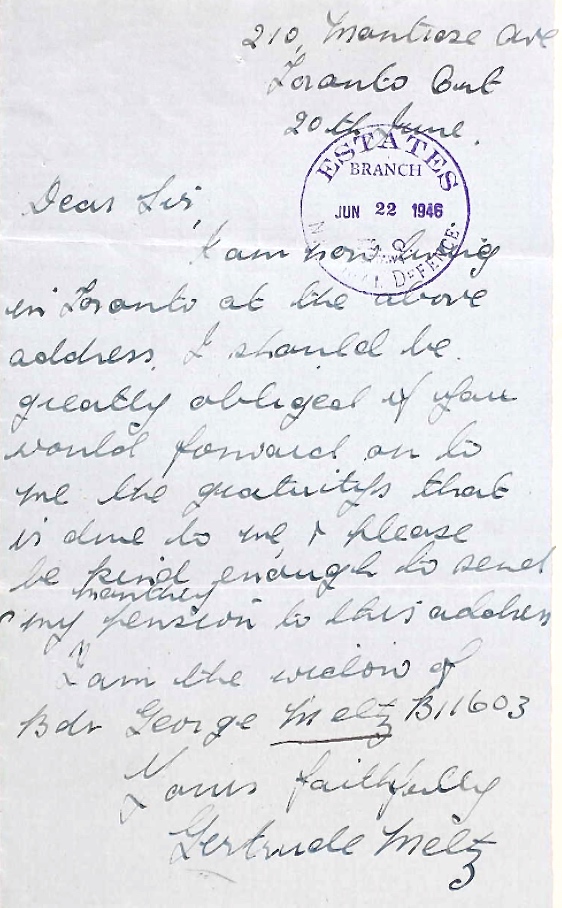 210, Montrose Ave
Toronto Ont
20th June.
ESTATES
BRANCH
JUN 22 1946
DEFENCE
Dear Sir,
I am now living
in Toronto at the above
address. I should be
greatly obliged if you
would forward on to
me the gratuitys that
is due to me, & please
be kind enough to send
monthly
my pension to this address
I am the widow of
Bdr George Meltz B11603
Yours faithfully
Gertrude Meltz